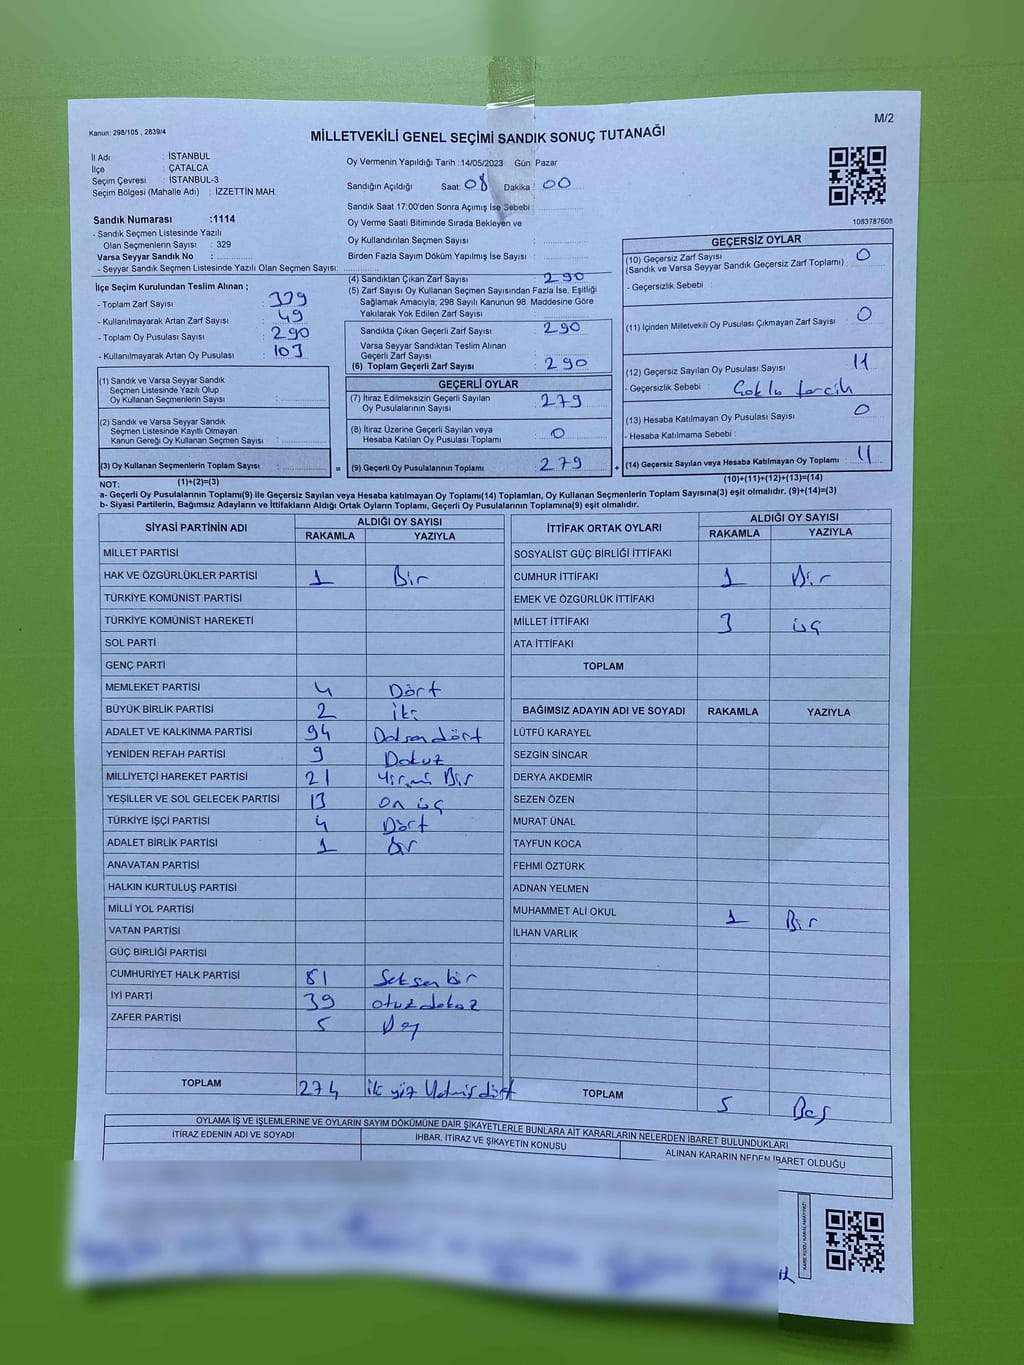 Kanun: 298/105 , 2839/4
M/2
MİLLETVEKİLİ GENEL SEÇİMİ SANDIK SONUÇ TUTANAĞI
İl Adı : İSTANBUL
İlçe : ÇATALCA
Seçim Çevresi : İSTANBUL-3
Seçim Bölgesi (Mahalle Adı) : İZZETTİN MAH.
Sandık Numarası :1114
- Sandık Seçmen Listesinde Yazılı
Olan Seçmenlerin Sayısı : 329
Varsa Seyyar Sandık No :
- Seyyar Sandık Seçmen Listesinde Yazılı Olan Seçmen Sayısı:
İlçe Seçim Kurulundan Teslim Alınan ;
- Toplam Zarf Sayısı : 339
- Kullanılmayarak Artan Zarf Sayısı : 49
- Toplam Oy Pusulası Sayısı : 290
- Kullanılmayarak Artan Oy Pusulası : 103
(1) Sandık ve Varsa Seyyar Sandık
Seçmen Listesinde Yazılı Olup
Oy Kullanan Seçmenlerin Sayısı :
(2) Sandık ve Varsa Seyyar Sandık
Seçmen Listesinde Kayıtlı Olmayan
Kanun Gereği Oy Kullanan Seçmen Sayısı :
(3) Oy Kullanan Seçmenlerin Toplam Sayısı :
(1)+(2)=(3)
Oy Vermenin Yapıldığı Tarih :14/05/2023 Gün Pazar
Sandığın Açıldığı Saat: 08 Dakika : 00
Sandık Saat 17:00'den Sonra Açımış İse Sebebi :
Oy Verme Saati Bitiminde Sırada Bekleyen ve
Oy Kullandırılan Seçmen Sayısı :
Birden Fazla Sayım Döküm Yapılmış İse Sayısı :
(4) Sandıktan Çıkan Zarf Sayısı : 290
(5) Zarf Sayısı Oy Kullanan Seçmen Sayısından Fazla İse, Eşitliği
Sağlamak Amacıyla; 298 Sayılı Kanunun 98. Maddesine Göre
Yakılarak Yok Edilen Zarf Sayısı :
Sandıkta Çıkan Geçerli Zarf Sayısı : 290
Varsa Seyyar Sandıktan Teslim Alınan
Geçerli Zarf Sayısı :
(6) Toplam Geçerli Zarf Sayısı : 290
GEÇERLİ OYLAR
(7) İtiraz Edilmeksizin Geçerli Sayılan
Oy Pusulalarının Sayısı : 279
(8) İtiraz Üzerine Geçerli Sayılan veya
Hesaba Katılan Oy Pusulası Toplamı : 0
= (9) Geçerli Oy Pusulalarının Toplamı : 279 +
1083787608
GEÇERSİZ OYLAR
(10) Geçersiz Zarf Sayısı : 0
(Sandık ve Varsa Seyyar Sandık Geçersiz Zarf Toplamı)
- Geçersizlik Sebebi :
(11) İçinden Milletvekili Oy Pusulası Çıkmayan Zarf Sayısı : 0
(12) Geçersiz Sayılan Oy Pusulası Sayısı : 11
- Geçersizlik Sebebi : Çoklu tercih
(13) Hesaba Katılmayan Oy Pusulası Sayısı : 0
- Hesaba Katılmama Sebebi :
(14) Geçersiz Sayılan veya Hesaba Katılmayan Oy Toplamı : 11
(10)+(11)+(12)+(13)=(14)
NOT:
a- Geçerli Oy Pusulalarının Toplamı(9) ile Geçersiz Sayılan veya Hesaba katılmayan Oy Toplamı(14) Toplamları, Oy Kullanan Seçmenlerin Toplam Sayısına(3) eşit olmalıdır. (9)+(14)=(3)
b- Siyasi Partilerin, Bağımsız Adayların ve İttifakların Aldığı Ortak Oyların Toplamı, Geçerli Oy Pusulalarının Toplamına(9) eşit olmalıdır.
SİYASİ PARTİNİN ADI ALDIĞI OY SAYISI
RAKAMLA YAZIYLA
MİLLET PARTİSİ
HAK VE ÖZGÜRLÜKLER PARTİSİ 1 Bir
TÜRKİYE KOMÜNİST PARTİSİ
TÜRKİYE KOMÜNİST HAREKETİ
SOL PARTİ
GENÇ PARTİ
MEMLEKET PARTİSİ 4 Dört
BÜYÜK BİRLİK PARTİSİ 2 iki
ADALET VE KALKINMA PARTİSİ 94 Doksan dört
YENİDEN REFAH PARTİSİ 9 Dokuz
MİLLİYETÇİ HAREKET PARTİSİ 21 Yirmi Bir
YEŞİLLER VE SOL GELECEK PARTİSİ 13 on üç
TÜRKİYE İŞÇİ PARTİSİ 4 Dört
ADALET BİRLİK PARTİSİ 1 Bir
ANAVATAN PARTİSİ
HALKIN KURTULUŞ PARTİSİ
MİLLİ YOL PARTİSİ
VATAN PARTİSİ
GÜÇ BİRLİĞİ PARTİSİ
CUMHURİYET HALK PARTİSİ 81 Seksen bir
İYİ PARTİ 39 otuz dokuz
ZAFER PARTİSİ 5 Beş
TOPLAM 274 iki yüz Yetmiş dört
İTTİFAK ORTAK OYLARI ALDIĞI OY SAYISI
RAKAMLA YAZIYLA
SOSYALİST GÜÇ BİRLİĞİ İTTİFAKI
CUMHUR İTTİFAKI 1 Bir
EMEK VE ÖZGÜRLÜK İTTİFAKI
MİLLET İTTİFAKI 3 üç
ATA İTTİFAKI
TOPLAM
BAĞIMSIZ ADAYIN ADI VE SOYADI RAKAMLA YAZIYLA
LÜTFÜ KARAYEL
SEZGİN SİNCAR
DERYA AKDEMİR
SEZEN ÖZEN
MURAT ÜNAL
TAYFUN KOCA
FEHMİ ÖZTÜRK
ADNAN YELMEN
MUHAMMET ALİ OKUL 1 Bir
İLHAN VARLIK
TOPLAM 5 Beş
OYLAMA İŞ VE İŞLEMLERİNE VE OYLARIN SAYIM DÖKÜMÜNE DAİR ŞİKAYETLERLE BUNLARA AİT KARARLARIN NELERDEN İBARET BULUNDUKLARI
İTİRAZ EDENİN ADI VE SOYADI İHBAR, İTİRAZ VE ŞİKAYETİN KONUSU ALINAN KARARIN NEDEN İBARET OLDUĞU